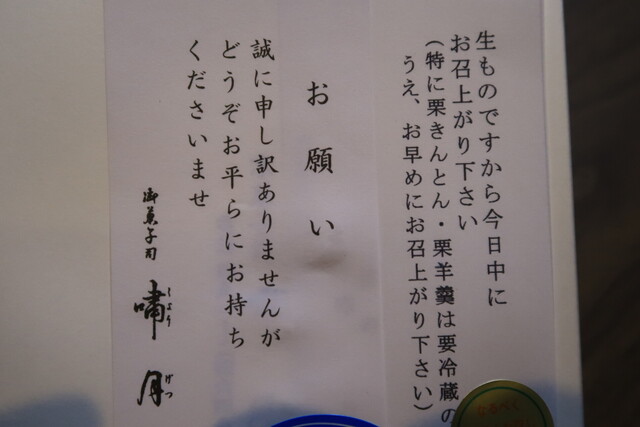 生ものですから今日中に
お召上がり下さい
(特に栗きんとん・栗羊羹は要冷蔵の
うえ、お早めにお召上がり下さい)
お願い
誠に申し訳ありませんが
どうぞお平らにお持ち
くださいませ
御菓子司
嘯月
しょうげつ